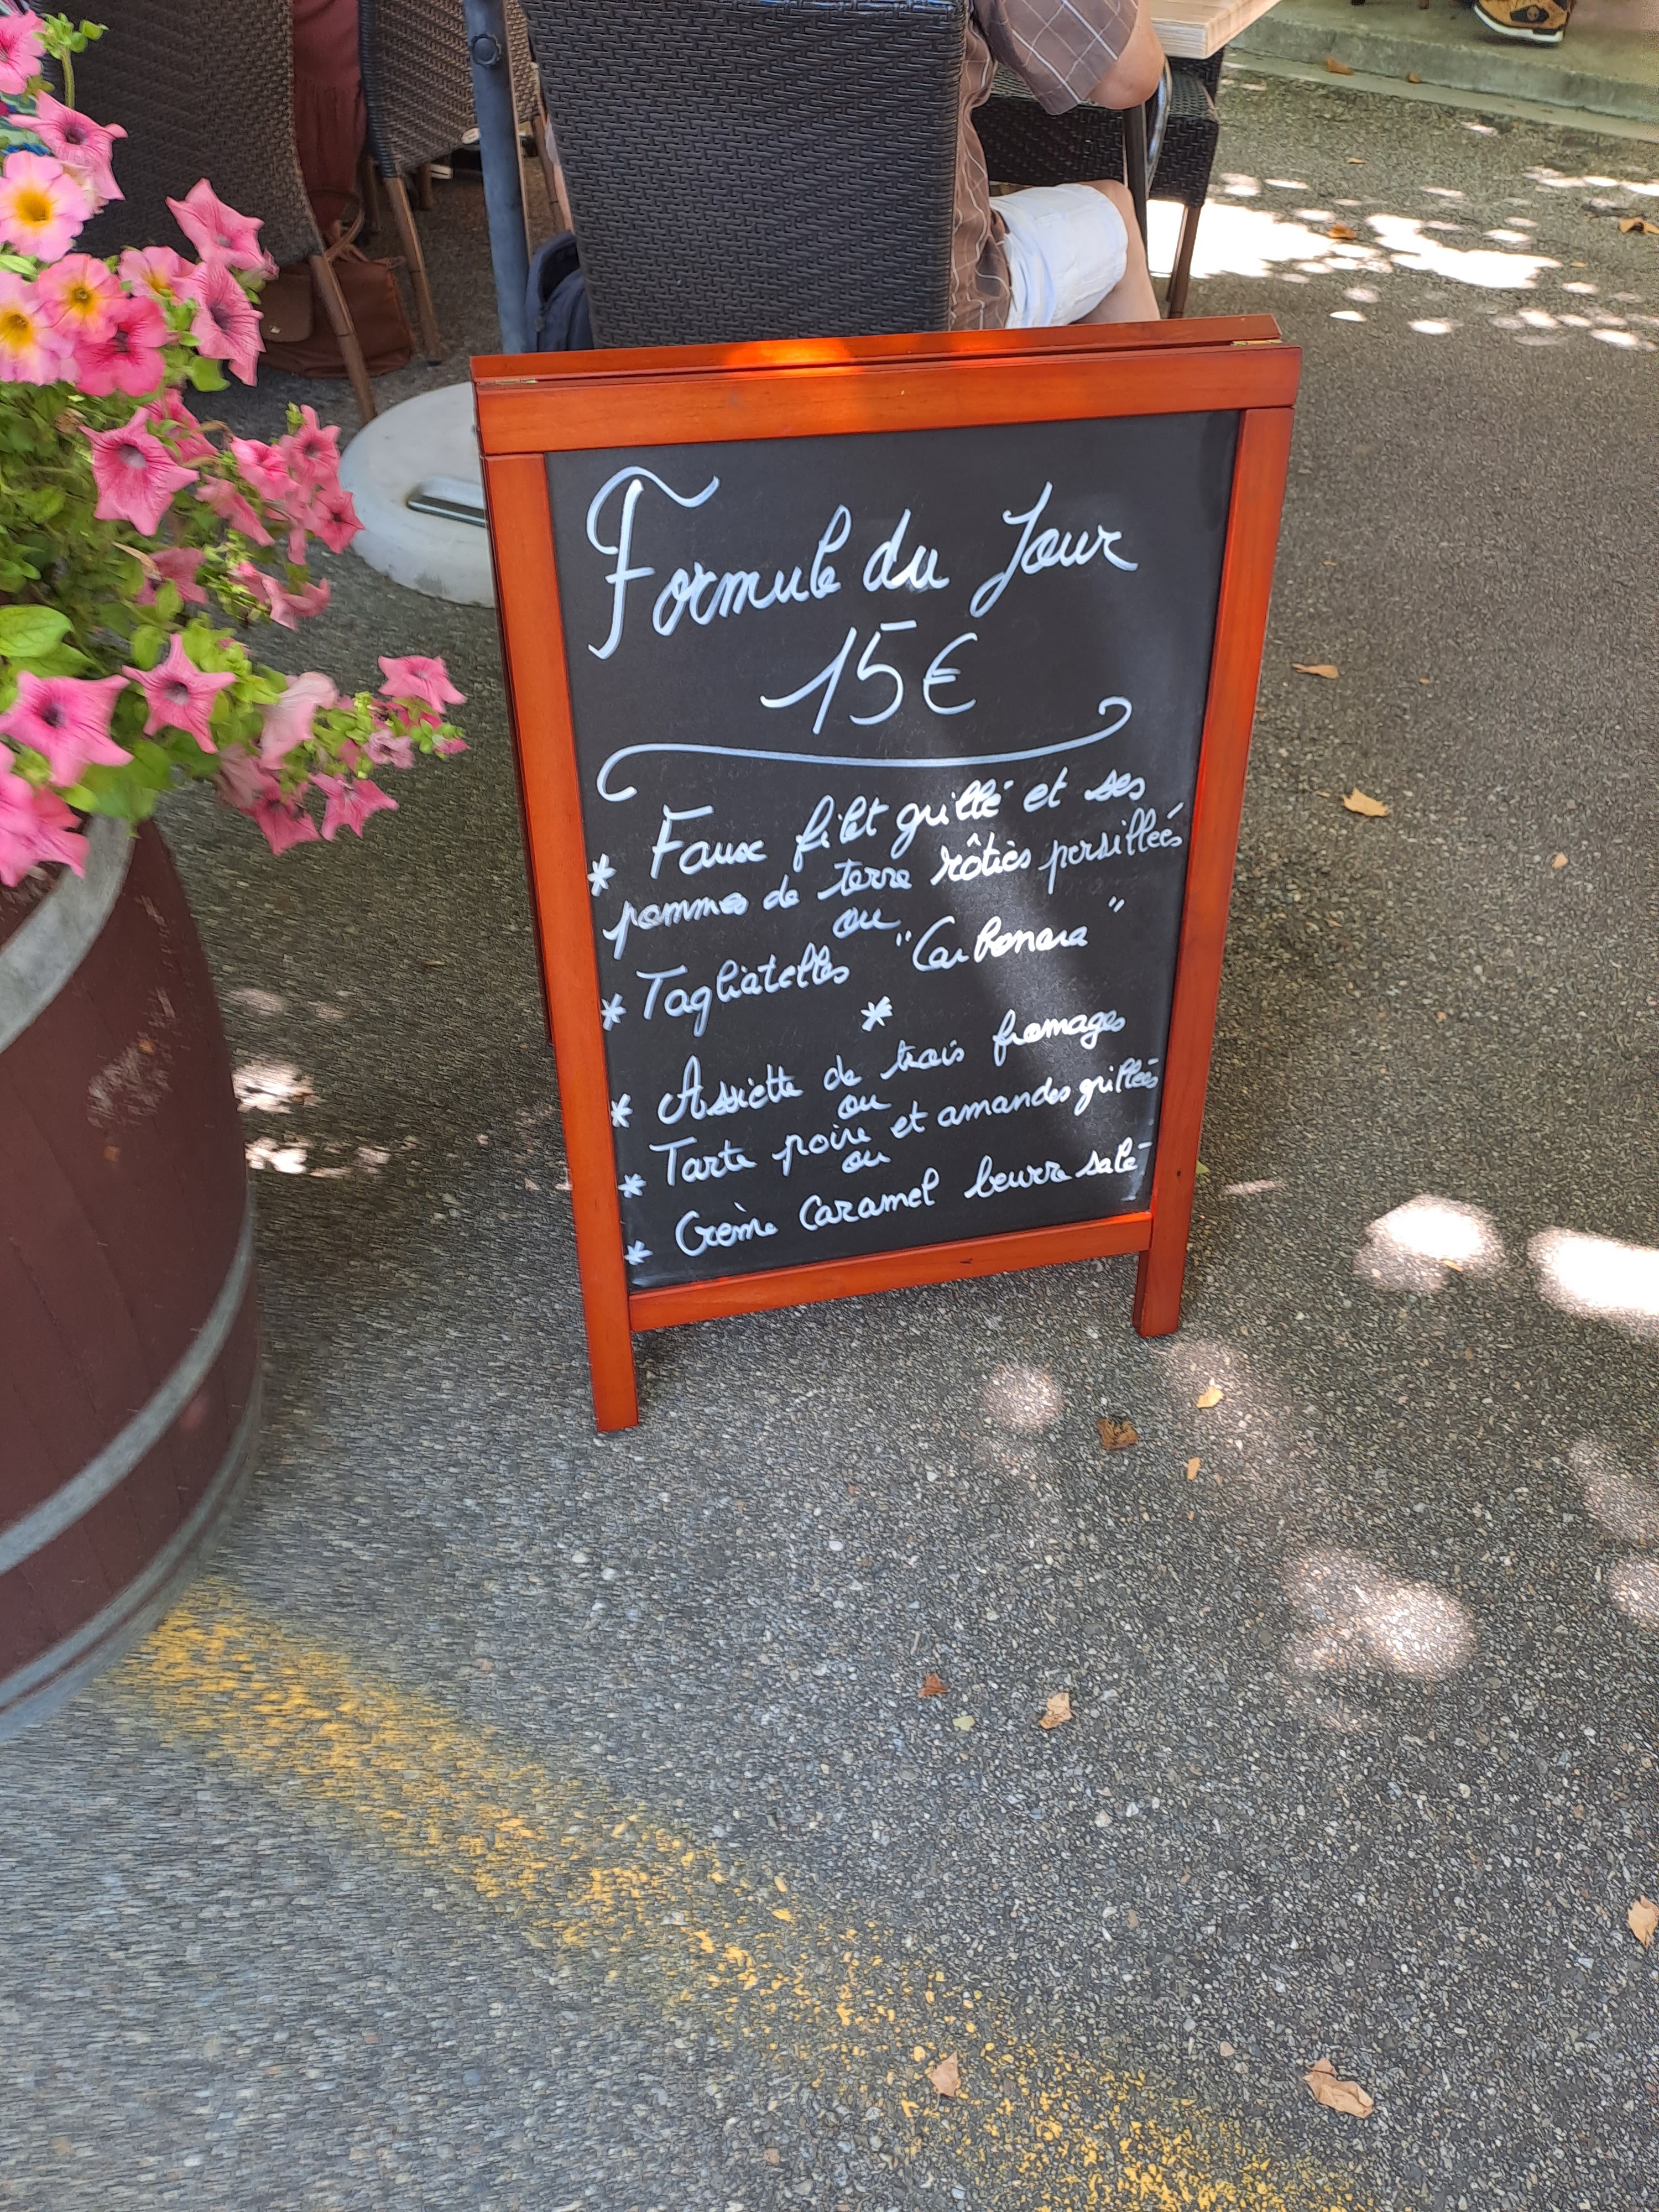 Formule du Jour
15€
* Faux filet grillé et ses
pommes de terre rôties persillées
ou
* Tagliatelles "Carbonara"
*
* Assiette de trois fromages
ou
* Tarte poire et amandes grillées
ou
* Crème Caramel beurre salé